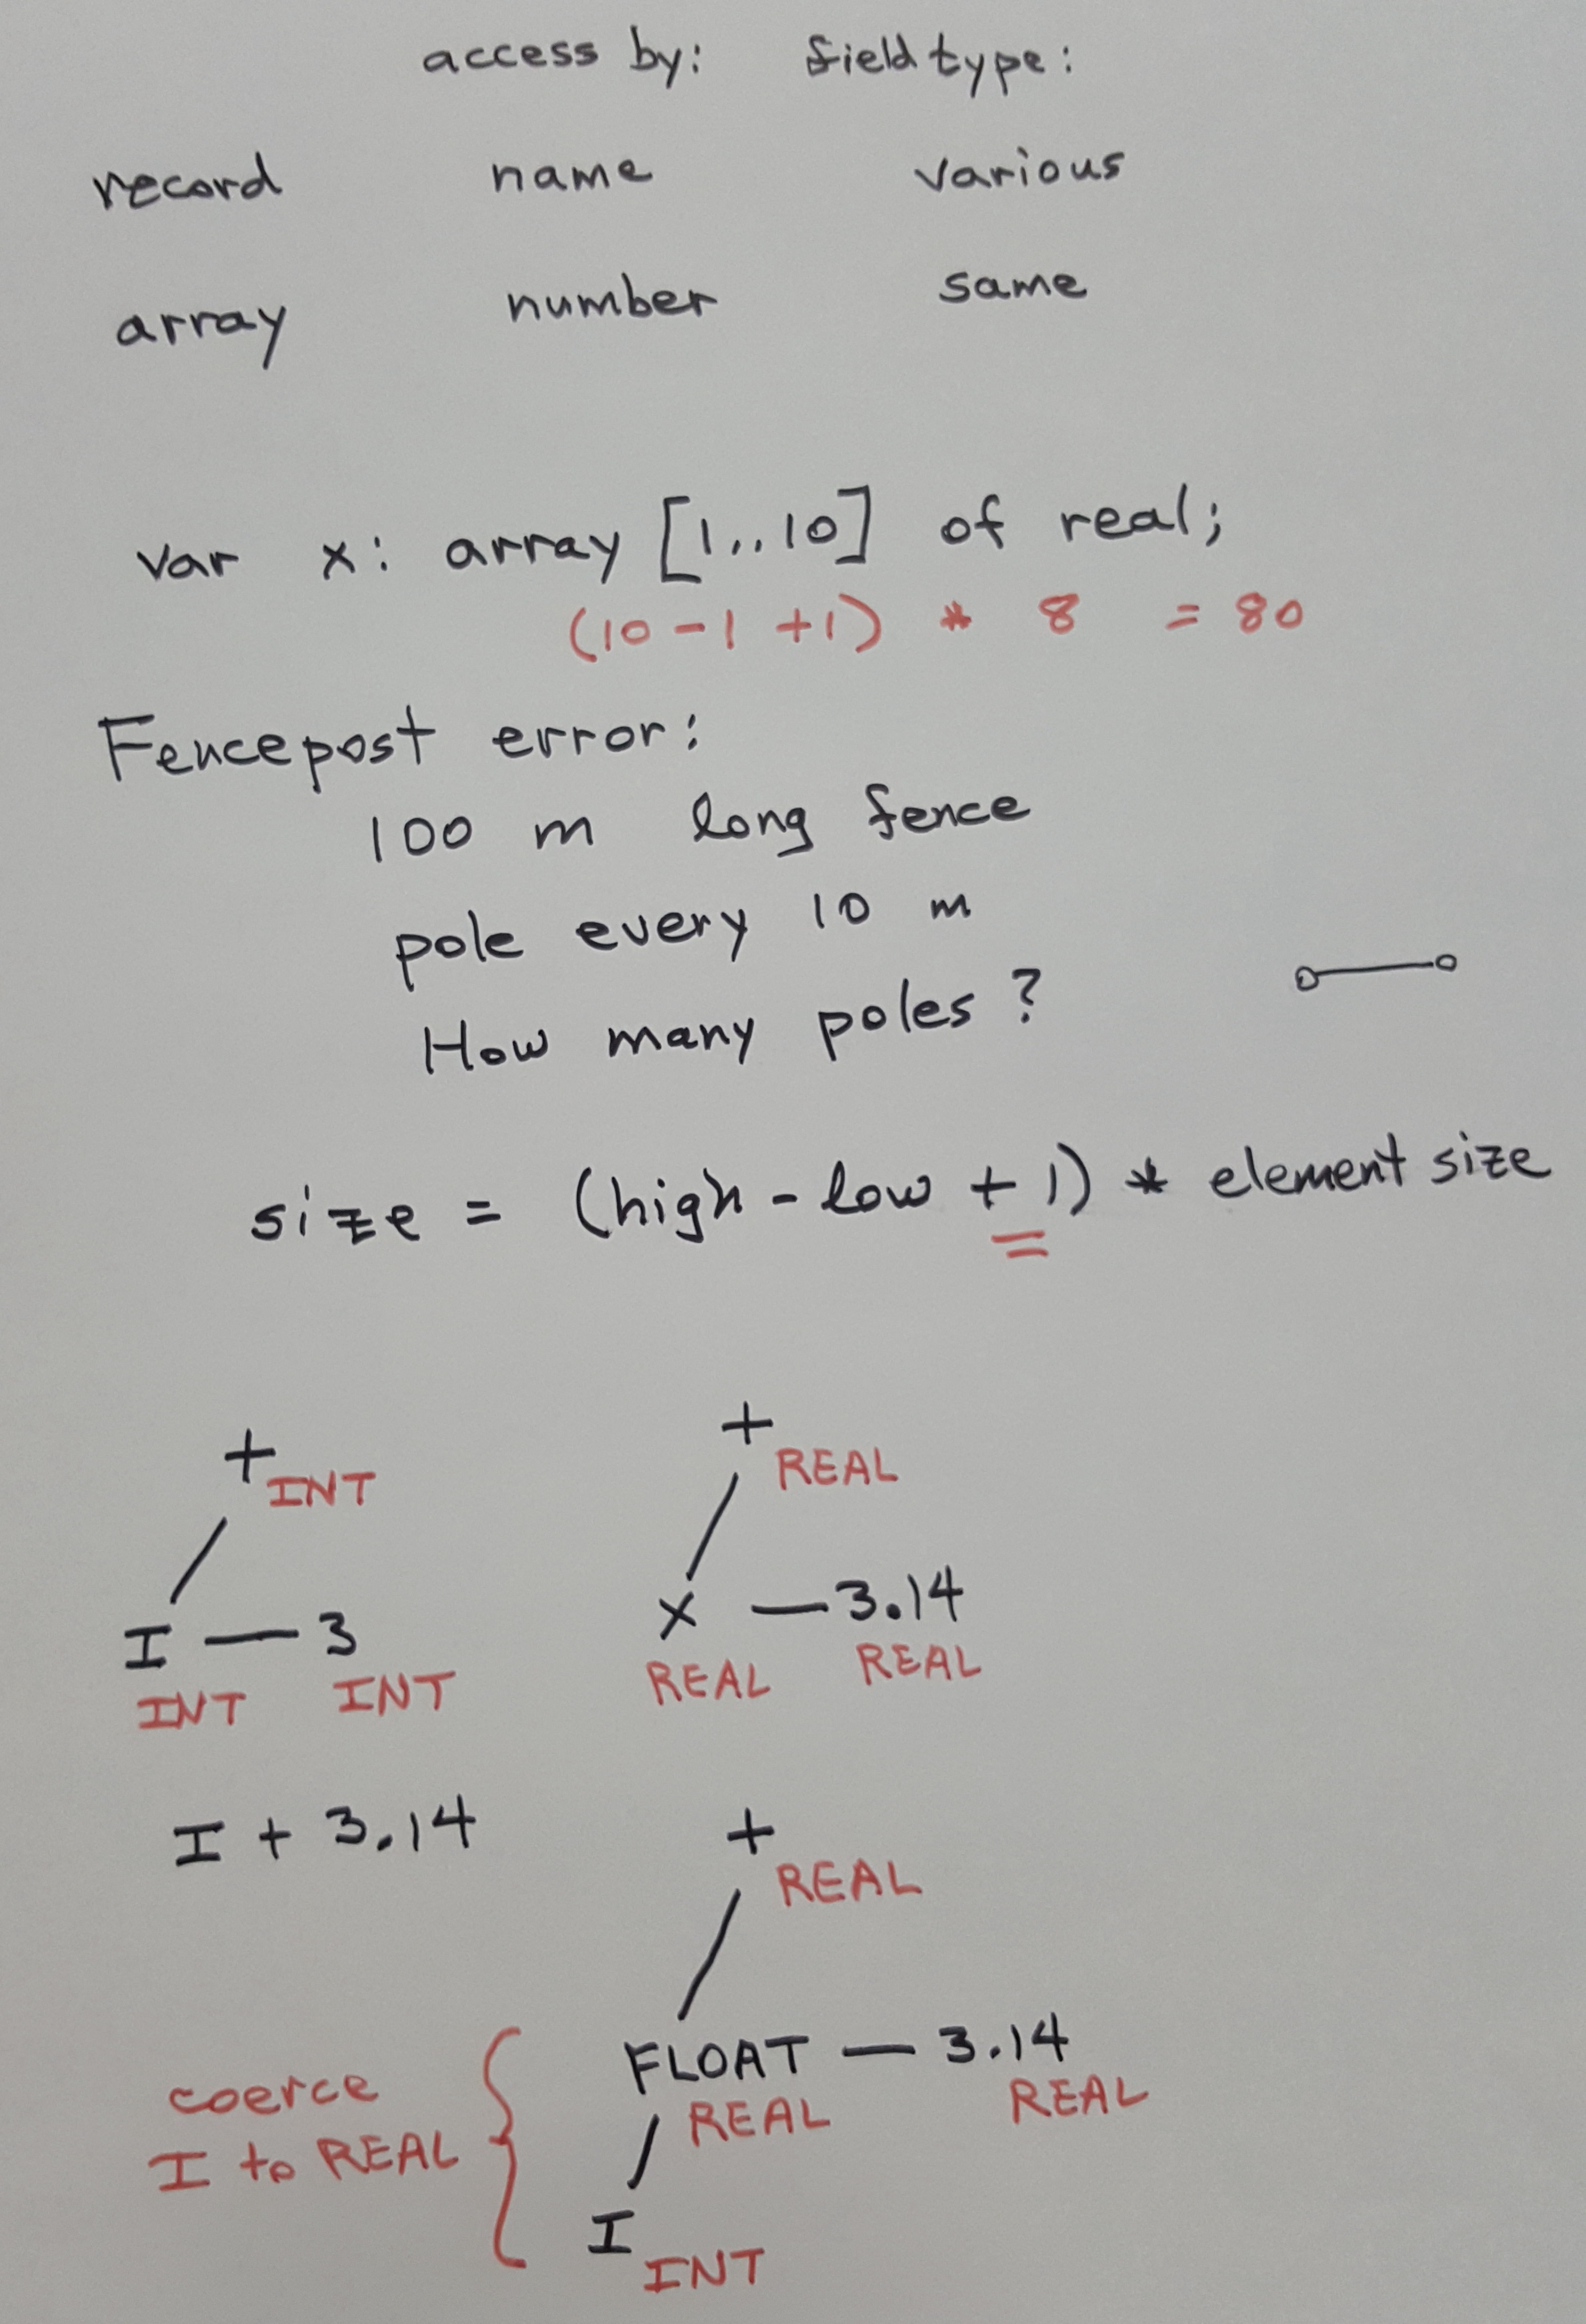 access by: field type:
record name various
array number same
var x: array [1..10] of real;
(10 - 1 + 1) * 8 = 80
Fencepost error:
100 m long fence
pole every 10 m
How many poles?
size = (high - low + 1) * element size
+ INT
+ REAL
I — 3
X — 3.14
INT INT
REAL REAL
I + 3.14
+ REAL
FLOAT — 3.14
REAL REAL
coerce
I to REAL
I INT